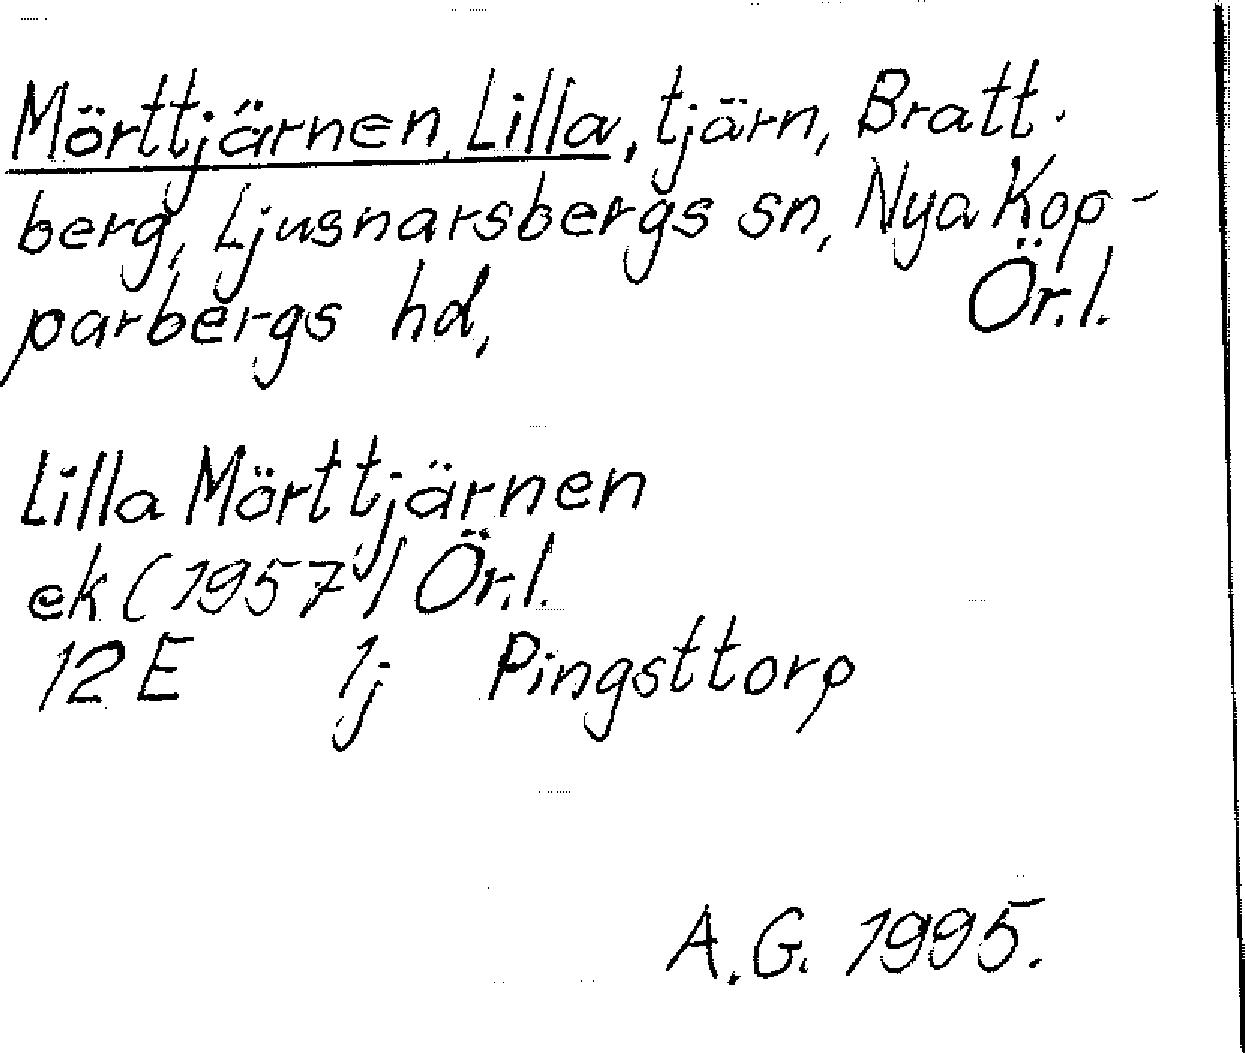 Mörttjärnen, Lilla, tjärn, Bratt-
berg, Ljusnarsbergs sn, Nya Kop-
parbergs hd, Ör.l.
Lilla Mörttjärnen
ek (1957) Ör.l.
12 E 1j Pingsttorp
A.G. 1995.